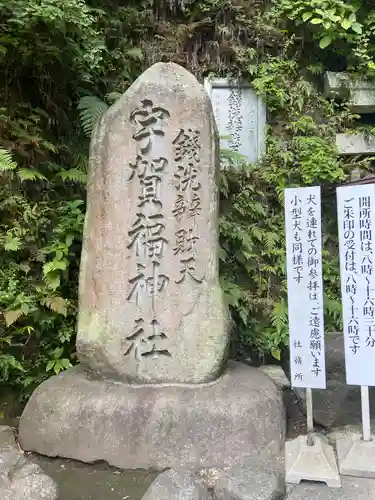 銭洗辨財天
宇賀福神社
犬を連れての御参拝はご遠慮願います
小型犬も同様です
社務所
開所時間は、八時〜十六時三十分
ご朱印の受付は、八時〜十六時